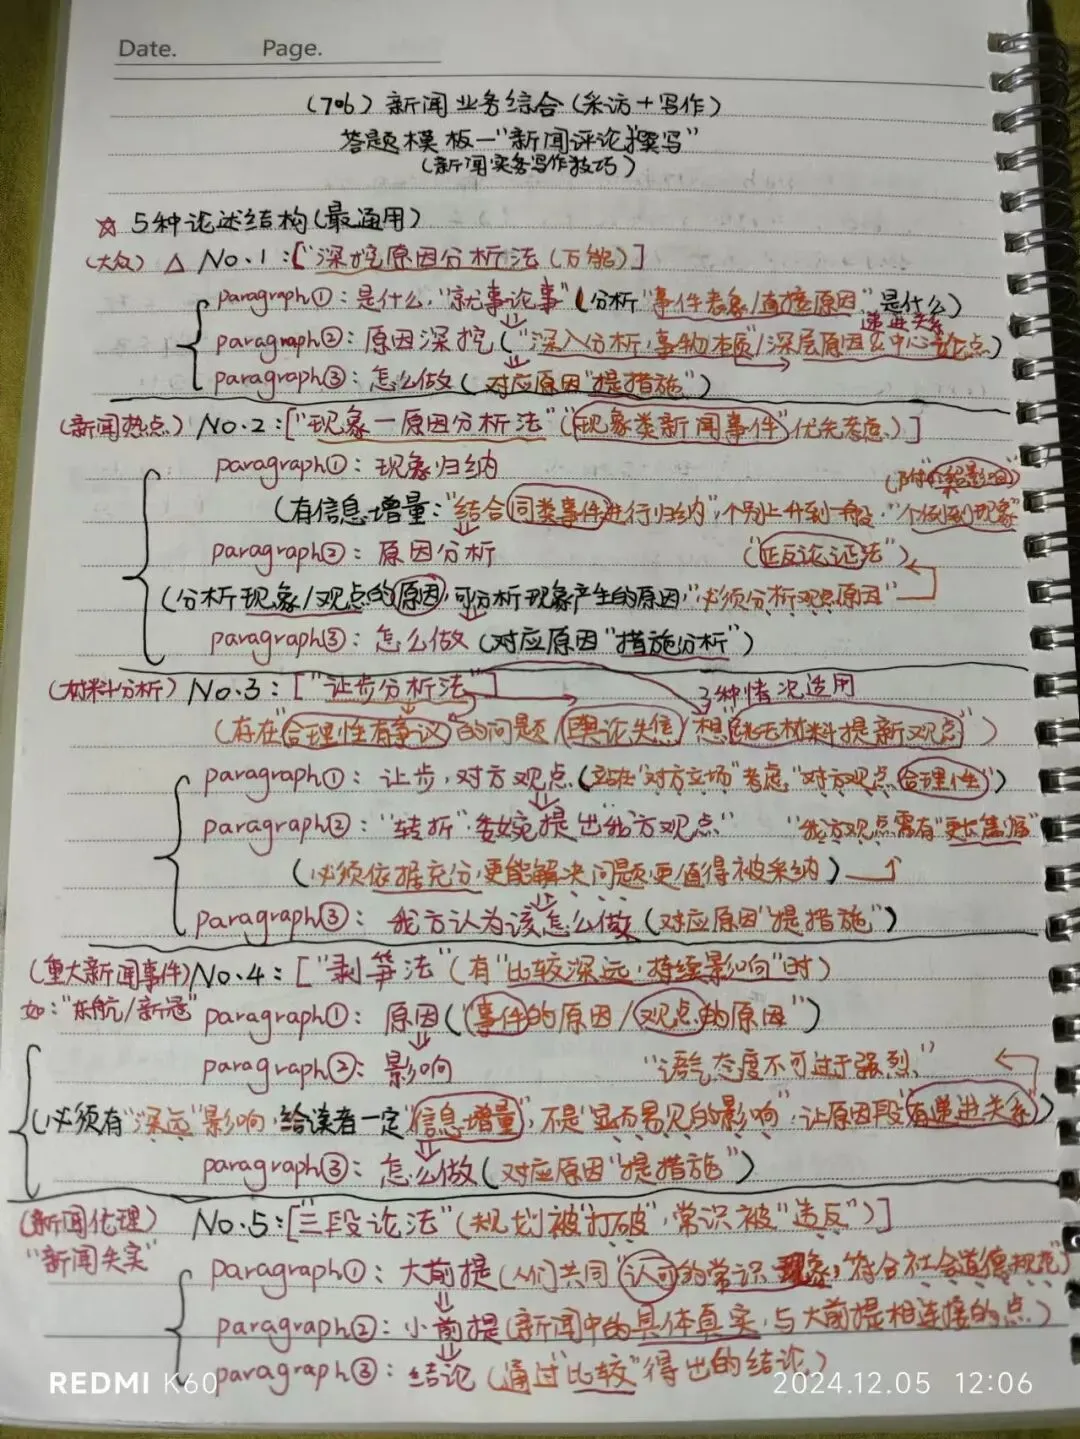 Date. Page.
(706) 新闻业务综合(采访+写作)
答题模板—"新闻评论撰写"
(新闻实务写作技巧)
☆ 5种论述结构(最通用)
(大众) △ No.1:["深挖原因分析法(万能)]
paragraph①:是什么,"就事论事"(分析"事件表象/直接原因"是什么)
递进关系
paragraph②:原因深挖("深入分析,事物本质/深层原因 中心论点)
paragraph③:怎么做(对应原因"提措施")
(新闻热点) No.2:["现象—原因分析法"(现象类新闻事件"优先考虑)]
paragraph①:现象归纳
(有信息增量:"结合同类事件进行归纳",个别上升到一般,"个例到现象"
paragraph②:原因分析 (正反论证法")
(分析现象/观点的原因,可分析现象产生的原因,"必须分析观点原因"
paragraph③:怎么做(对应原因"措施分析")
(材料分析) No.3:["让步分析法"] 3种情况适用
(存在"合理性有争议"的问题/舆论失信/想"就此材料提新观点")
paragraph①:让步,对方观点(站在"对方立场"考虑,"对方观点合理性")
paragraph②:"转折",委婉提出我方观点" "我方观点需有"更大
(必须依据充分,更能解决问题,更值得被采纳)
paragraph③:我方认为该怎么做(对应原因"提措施")
(重大新闻事件) No.4:["剥笋法"(有"比较深远,持续影响"时)
如:"东航/新冠" paragraph①:原因("事件的原因/观点的原因")
paragraph②:影响 "语气态度不可过于强烈."
(必须有"深远"影响,给读者一定"信息增量",不是"显而易见的影响",让原因段"有递进关系)
paragraph③:怎么做(对应原因"提措施")
(新闻伦理) No.5:["三段论法"(规划被"打破",常识被"违反")]
"新闻失实" paragraph①:大前提(人们共同"认可的常识现象,符合社会道德规范)
paragraph②:小前提(新闻中的具体真实,与大前提相连接的点)
paragraph③:结论(通过"比较"得出的结论)
REDMI K60 2024.12.05 12:06